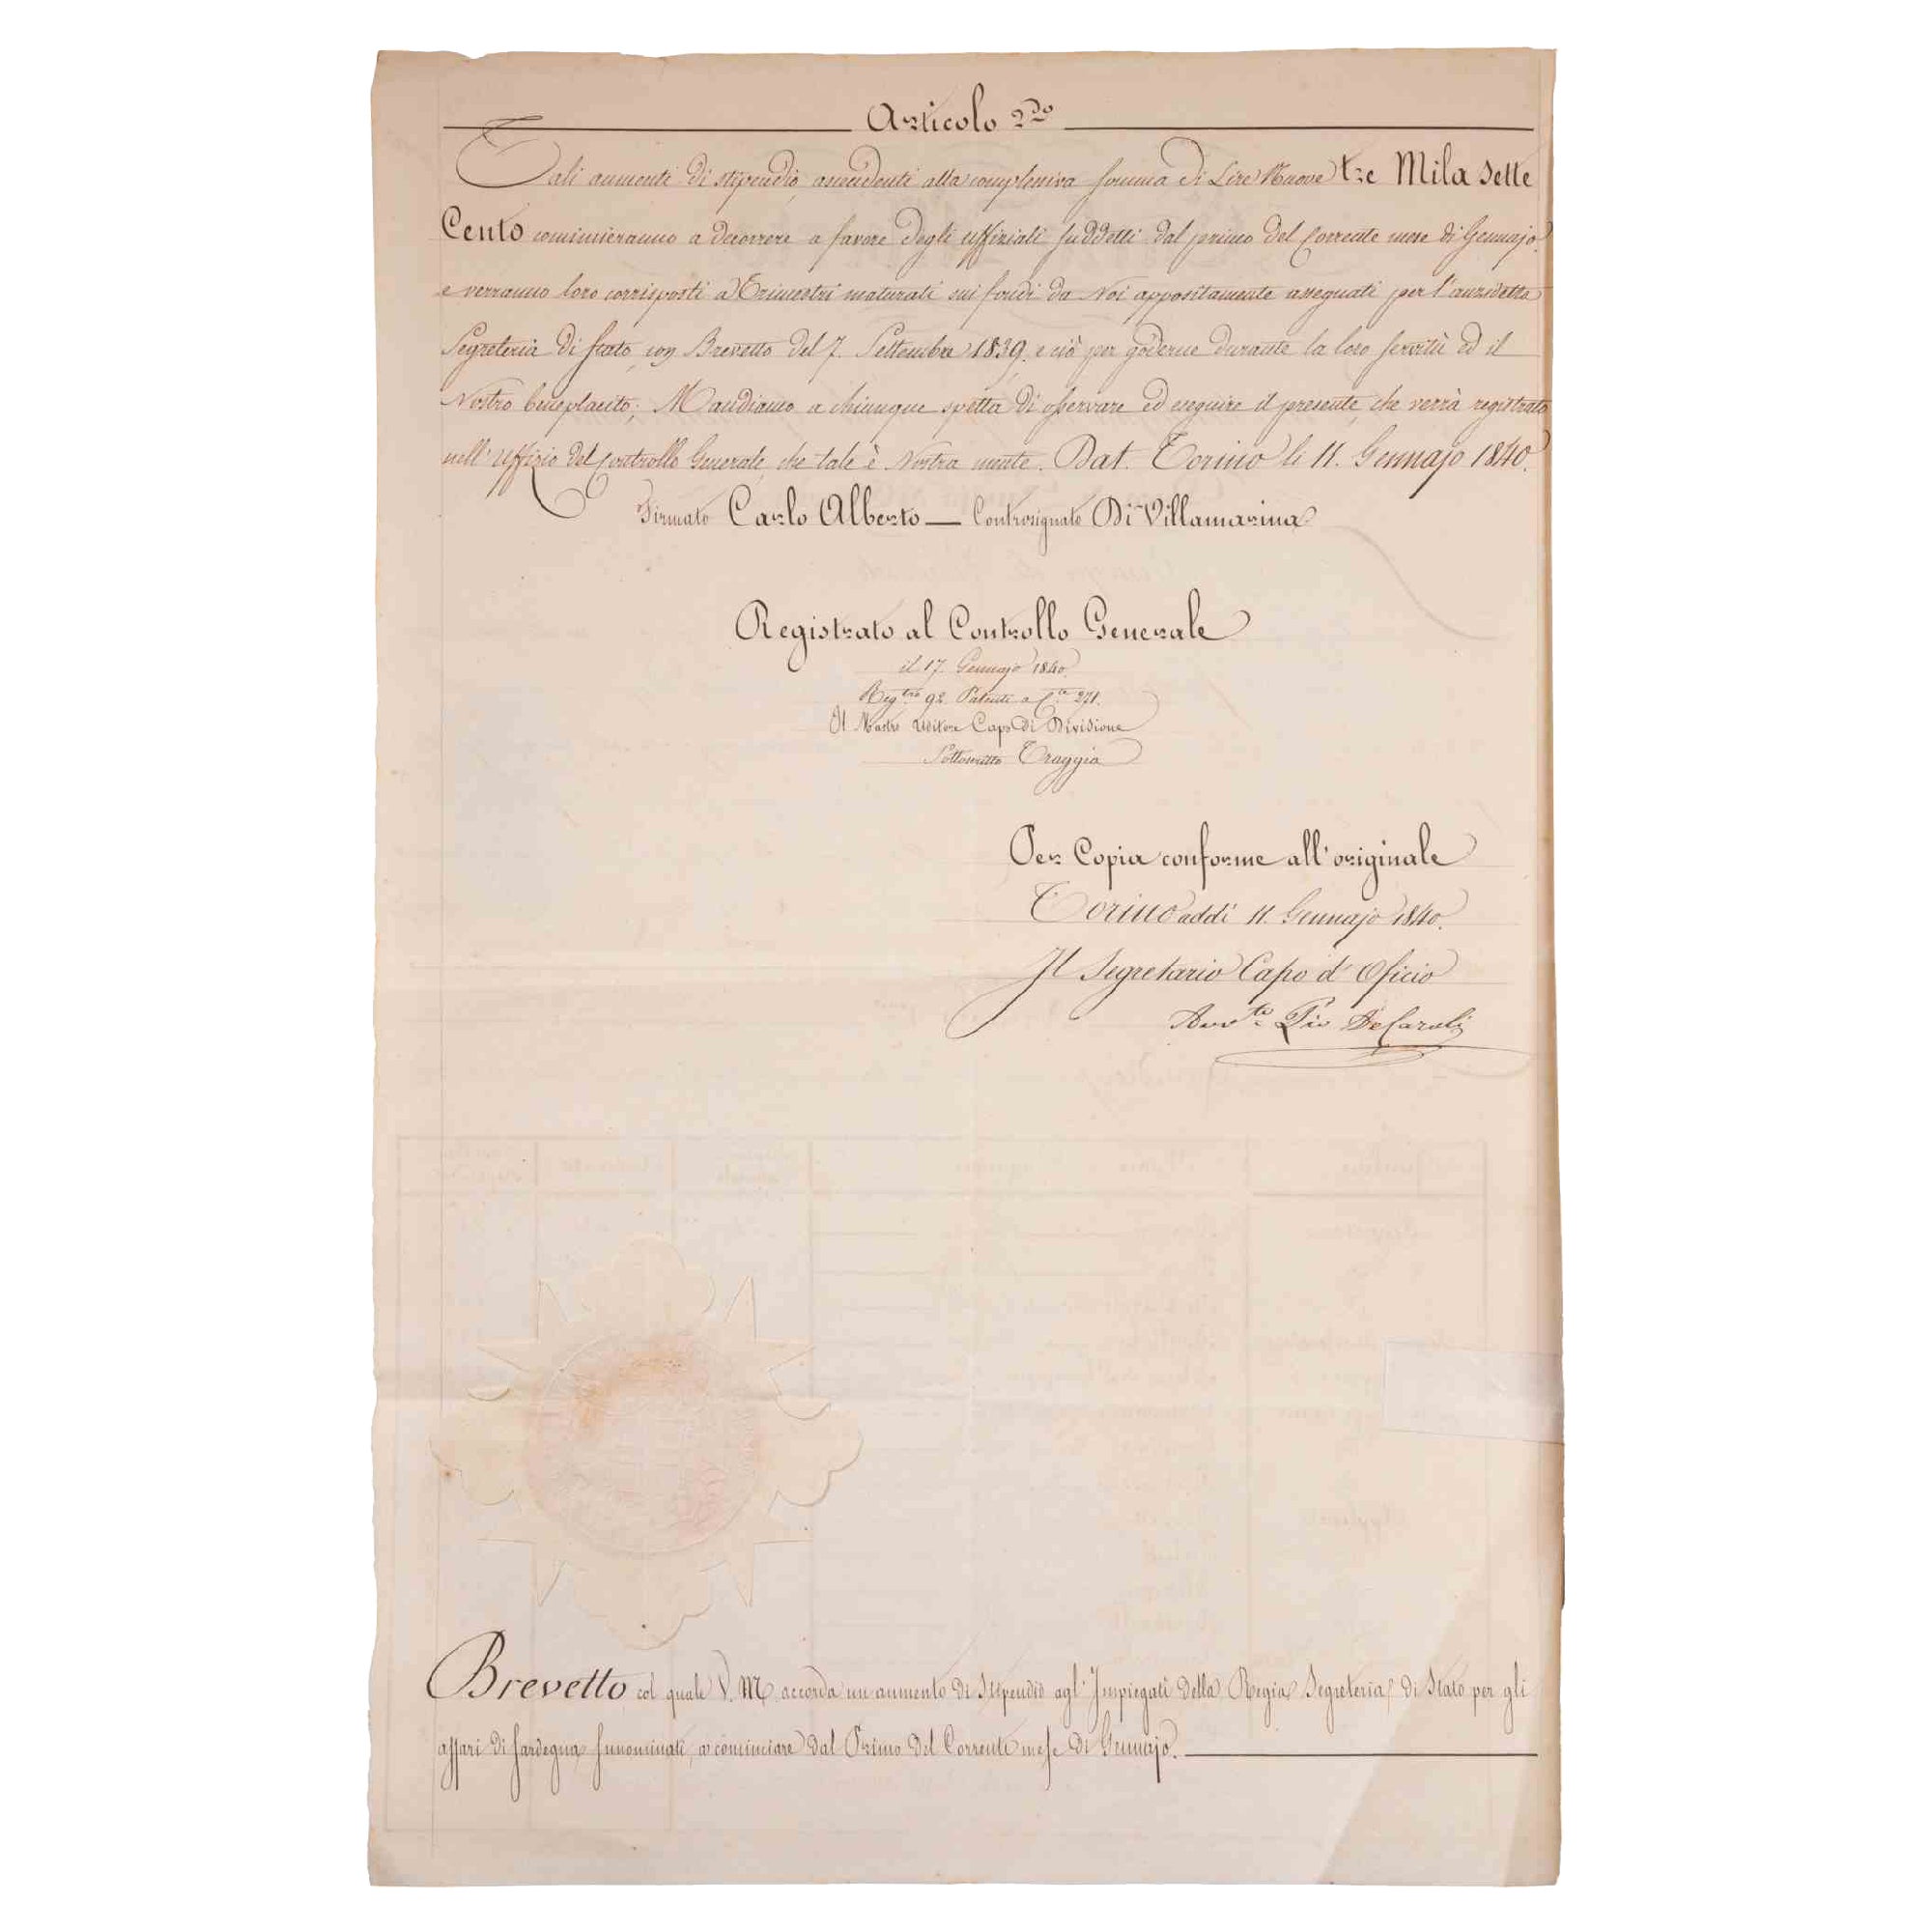 Articolo 2do
Tali aumenti di stipendio, ascendenti alla complessiva somma di Lire Nuove tre Mila Sette
Cento comincieranno a decorrere a favore degli Uffiziali suddetti dal primo del corrente mese di Gennajo
e verranno loro corrisposti a Trimestri maturati sui fondi da Noi appositamente assegnati per l'anzidetta
Segreteria di Stato, con Brevetto del 7. Settembre 1839. e ciò per goderne durante la loro servitù ed il
Nostro beneplacito; Mandiamo a chiunque spetta di osservare ed eseguire il presente, che verrà registrato
nell'Uffizio del Controllo Generale, che tale è Nostra mente. Dat. Torino li 11. Gennajo 1840.
Firmato Carlo Alberto — Controsignato Di Villamarina
Registrato al Controllo Generale
il 17. Gennajo 1840.
Regtro 92 Patenti a Cte 271.
Il Mastro Uditore Capo di Divisione
Sottoscritto Traggia
Per Copia conforme all'originale
Torino addì 11. Gennajo 1840.
Il Segretario Capo d'Oficio
Pio DeCaroli
Brevetto col quale V. M. accorda un aumento di Stipendio agl'Impiegati della Regia Segreteria di Stato per gli
affari di Sardegna sunominati, a cominciare dal Primo del Corrente mese di Gennajo.